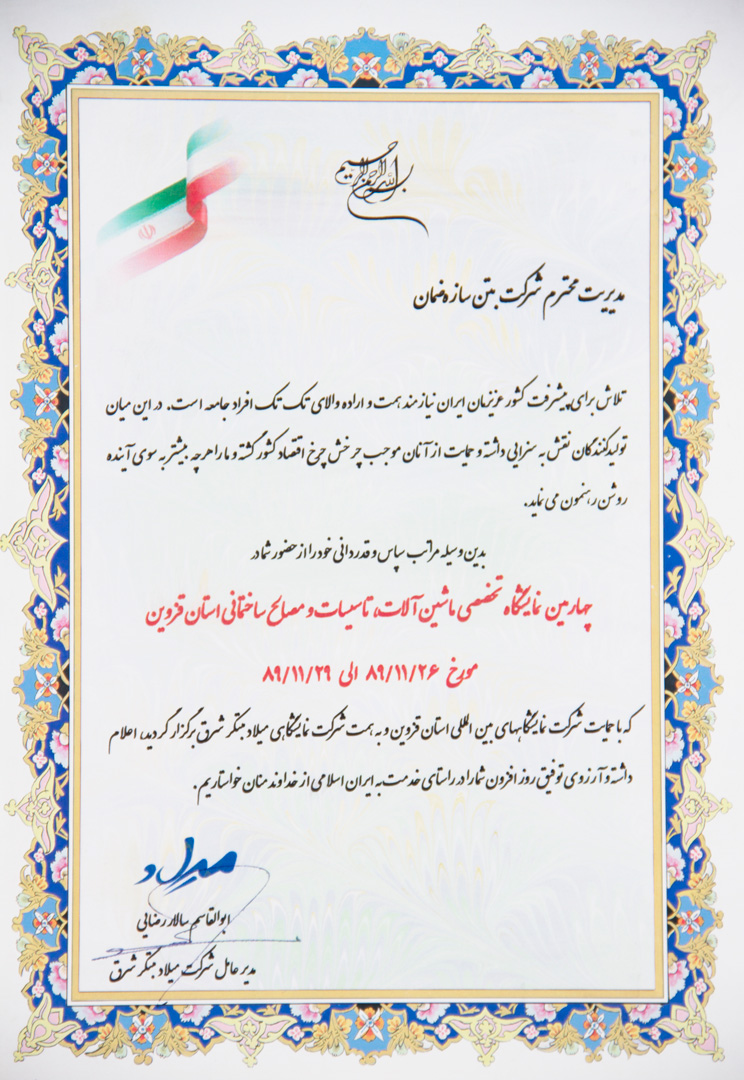 بسم الله الرحمن الرحیم
مدیریت محترم شرکت بتن سازه ضمان
تلاش برای پیشرفت کشور عزیزمان ایران نیازمند همت و اراده والای تک تک افراد جامعه است. در این میان
تولیدکنندگان نقش به سزایی داشته و حمایت از آنان موجب چرخش چرخ اقتصاد کشور گشته و ما را هرچه بیشتر به سوی آینده
روشن رهنمون می نماید.
بدین وسیله مراتب سپاس و قدردانی خود را از حضور شما در
چهارمین نمایشگاه تخصصی ماشین آلات، تاسیسات و مصالح ساختمانی استان قزوین
مورخ ۸۹/۱۱/۲۶ الی ۸۹/۱۱/۲۹
که با حمایت شرکت نمایشگاههای بین المللی استان قزوین و به همت شرکت نمایشگاهی میلاد مبتکر شرق برگزار گردید، اعلام
داشته و آرزوی توفیق روز افزون شما را در راستای خدمت به ایران اسلامی از خداوند منان خواستاریم.
میلاد
ابوالقاسم سالار رضایی
مدیر عامل شرکت میلاد مبتکر شرق